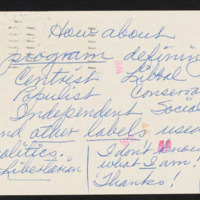 How about
program defining
Centrist Libral
Populist Conserva
Independent Social
and other labels used
olitics. I don't know
Libertarian what I am!
Thanks!